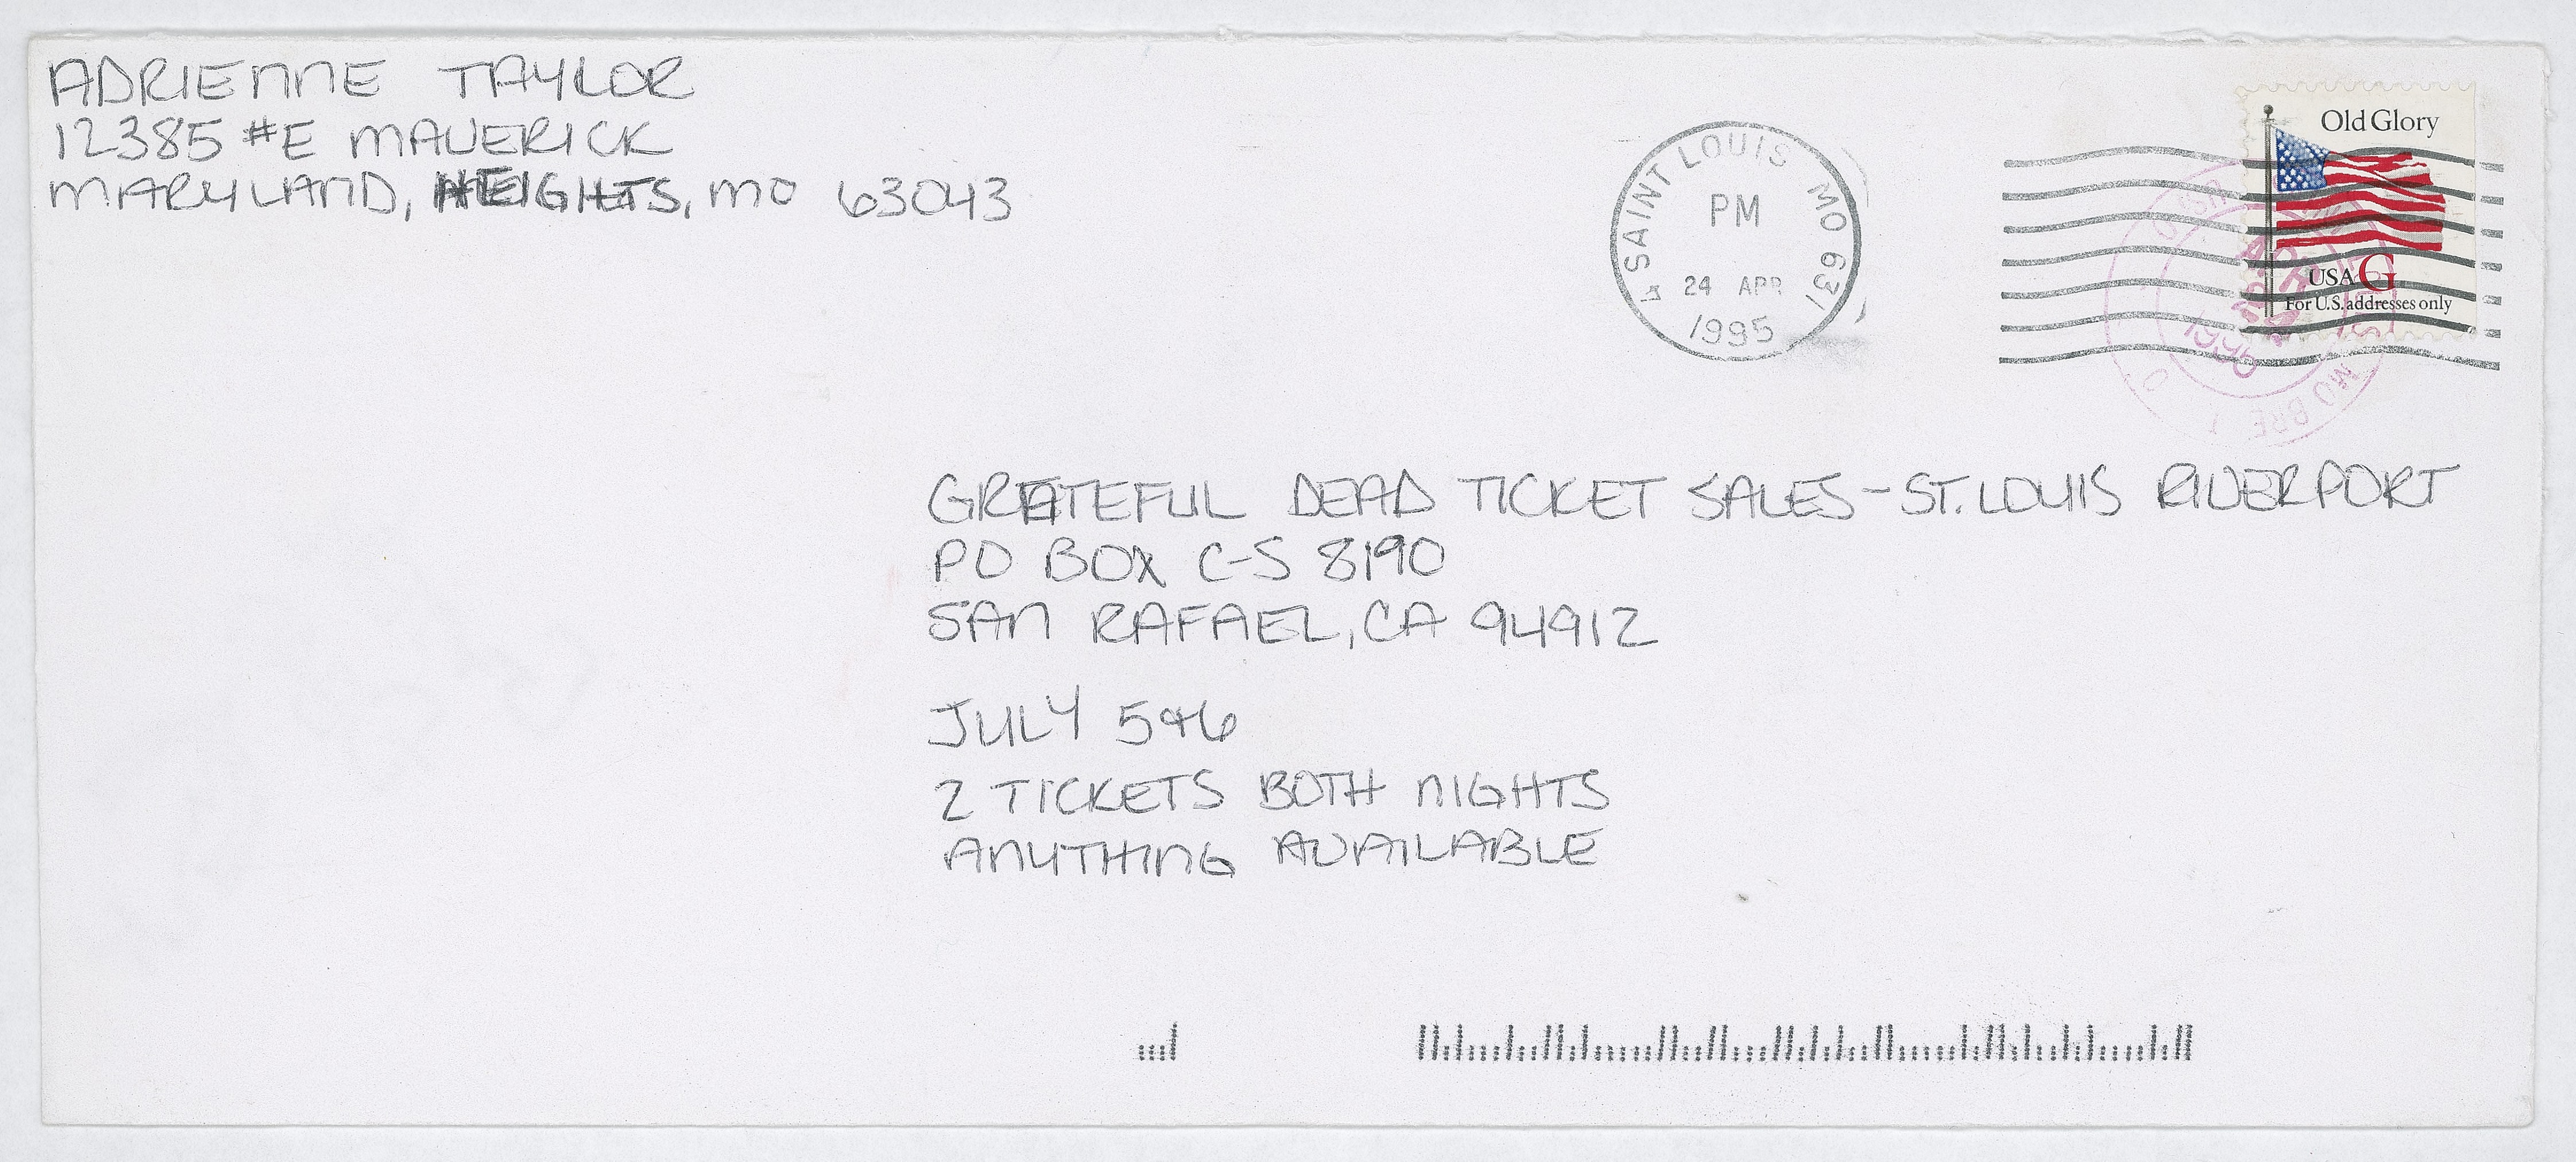 ADRIENNE TAYLOR
12385 #E MAVERICK
MARYLAND, HEIGHTS, MO 63043
SAINT LOUIS MO 631
PM
24 APR
1995
Old Glory
USA G
For U.S. addresses only
USA
APR
24
1995
MO BRE 1
GRATEFUL DEAD TICKET SALES-ST. LOUIS RIVERPORT
PO BOX C-S 8190
SAN RAFAEL, CA 94912
JULY 5&6
2 TICKETS BOTH NIGHTS
ANYTHING AVAILABLE